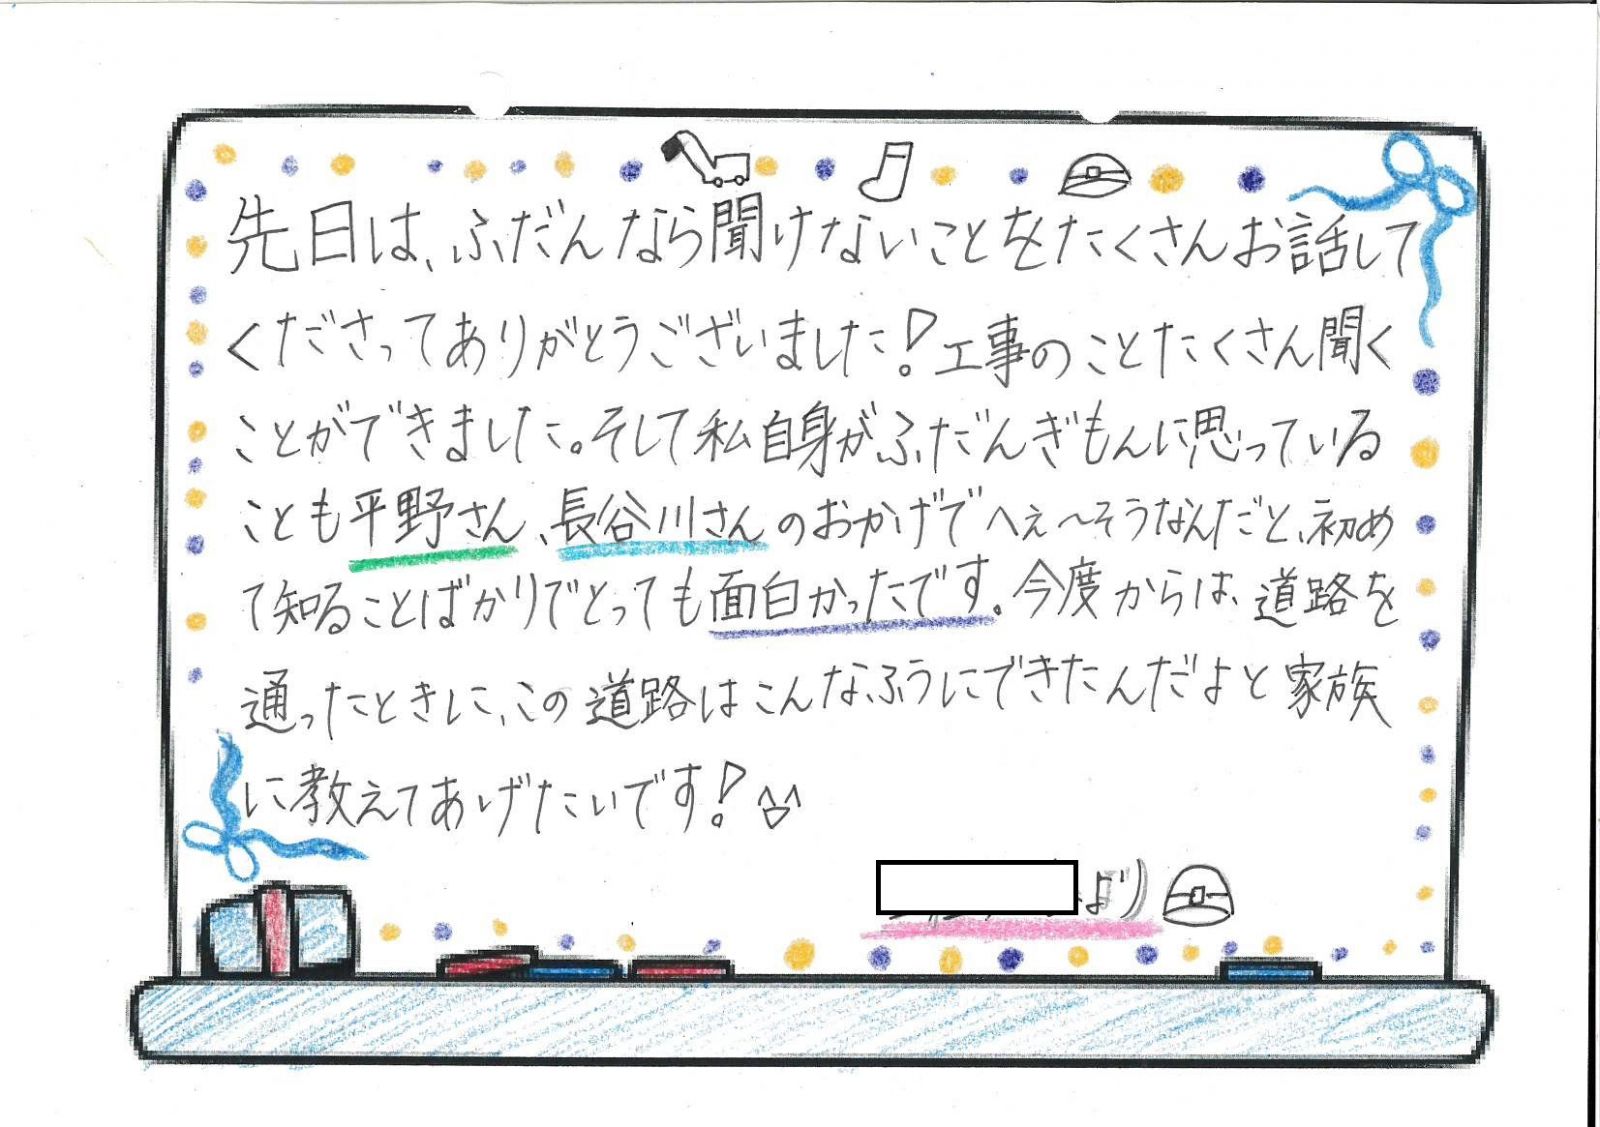 先日は、ふだんなら聞けないことをたくさんお話して
くださってありがとうございました!工事のことたくさん聞く
ことができました。そして私自身がふだんぎもんに思っている
ことも平野さん、長谷川さんのおかげでへぇ～そうなんだと、初め
て知ることばかりでとっても面白かったです。今度からは、道路を
通ったときに、この道路はこんなふうにできたんだよと家族
に教えてあげたいです!
より